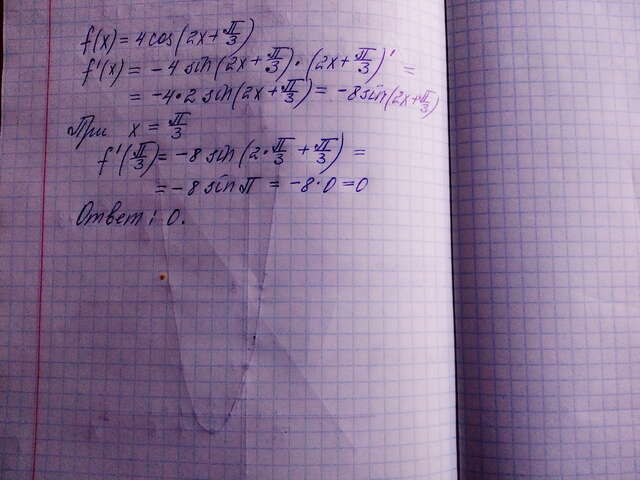 f(x) = 4cos(2x+π/3)
f'(x) = -4 sin(2x+π/3)·(2x+π/3)' =
= -4·2 sin(2x+π/3) = -8sin(2x+π/3)
При x = π/3
f'(π/3) = -8 sin(2·π/3+π/3) =
= -8 sin π = -8·0 = 0
Ответ: 0.